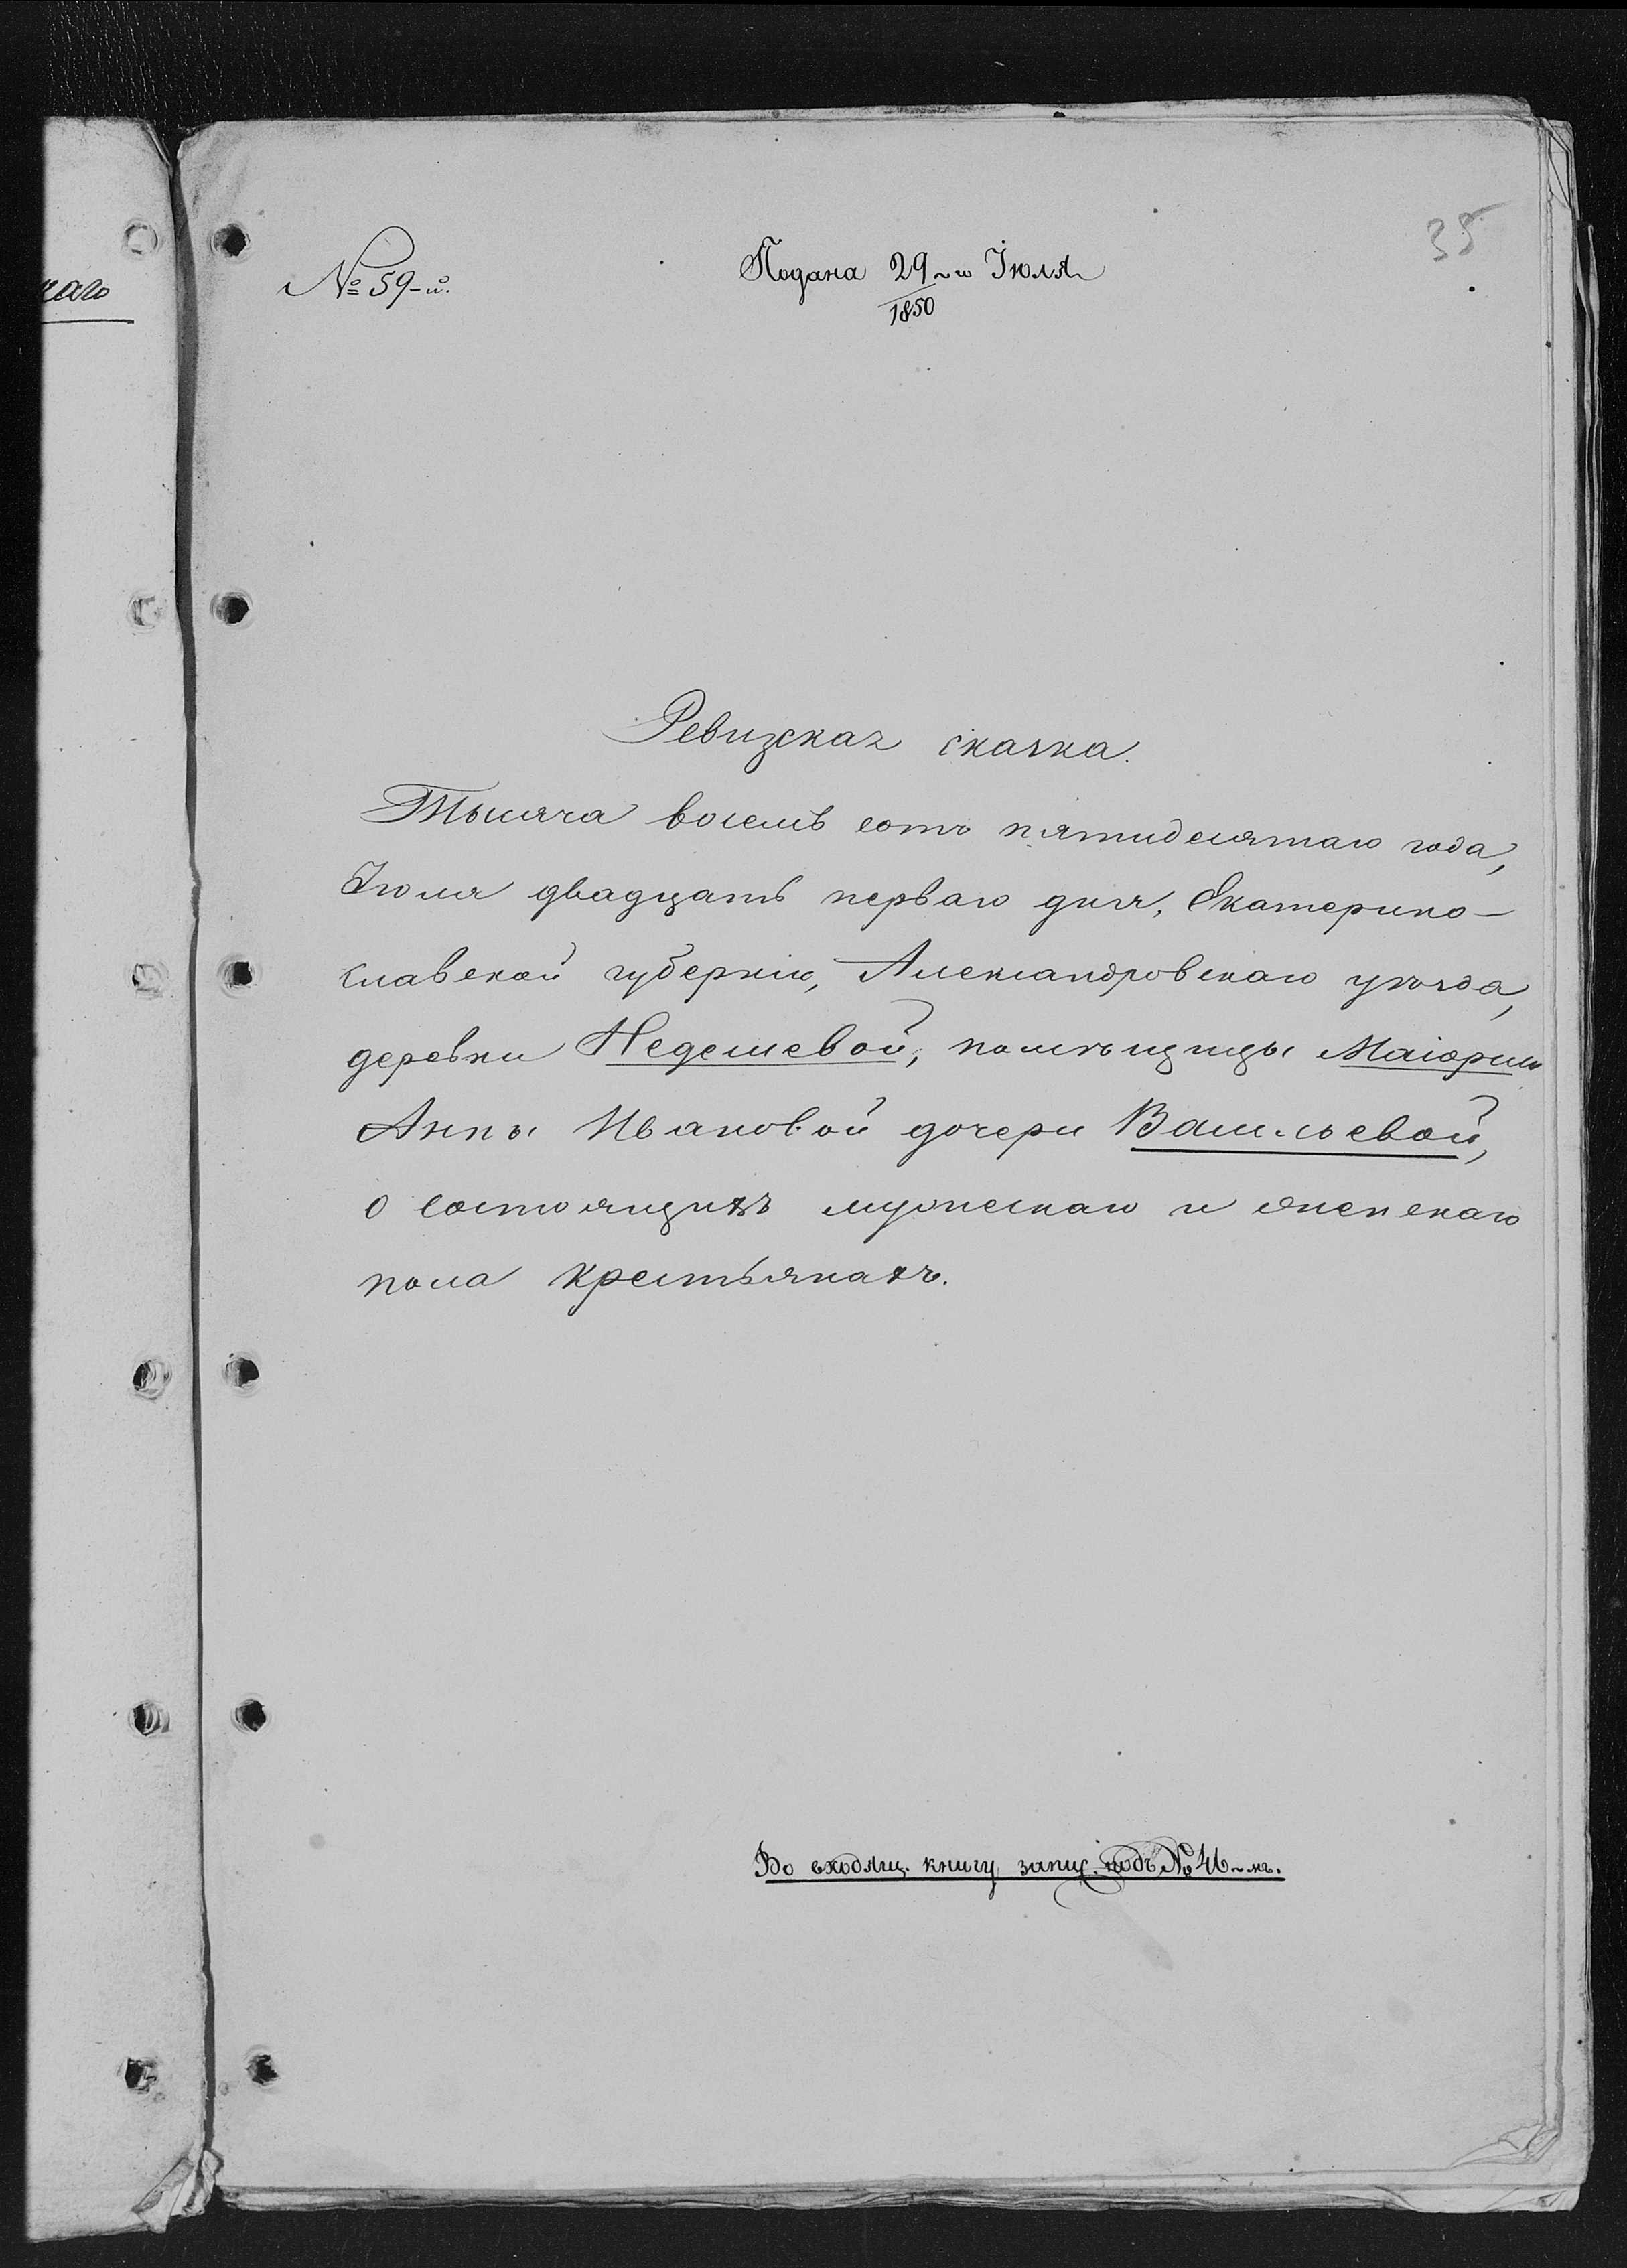 35
№ 59-й.
Подана 29~го Іюля
1850
Ревизская сказка.
Тысяча восемь сотъ пятидесятаго года,
Іюля двадцать перваго дня, Екатерино-
славской губерніи, Александровскаго уѣзда,
деревни Недешевой, помѣщицы Маіорши
Анны Ивановой дочери Васильевой,
о состоящихъ мужескаго и женскаго
пола крестьянахъ.
Во входящ. книгу запис. подъ № 46~мъ.